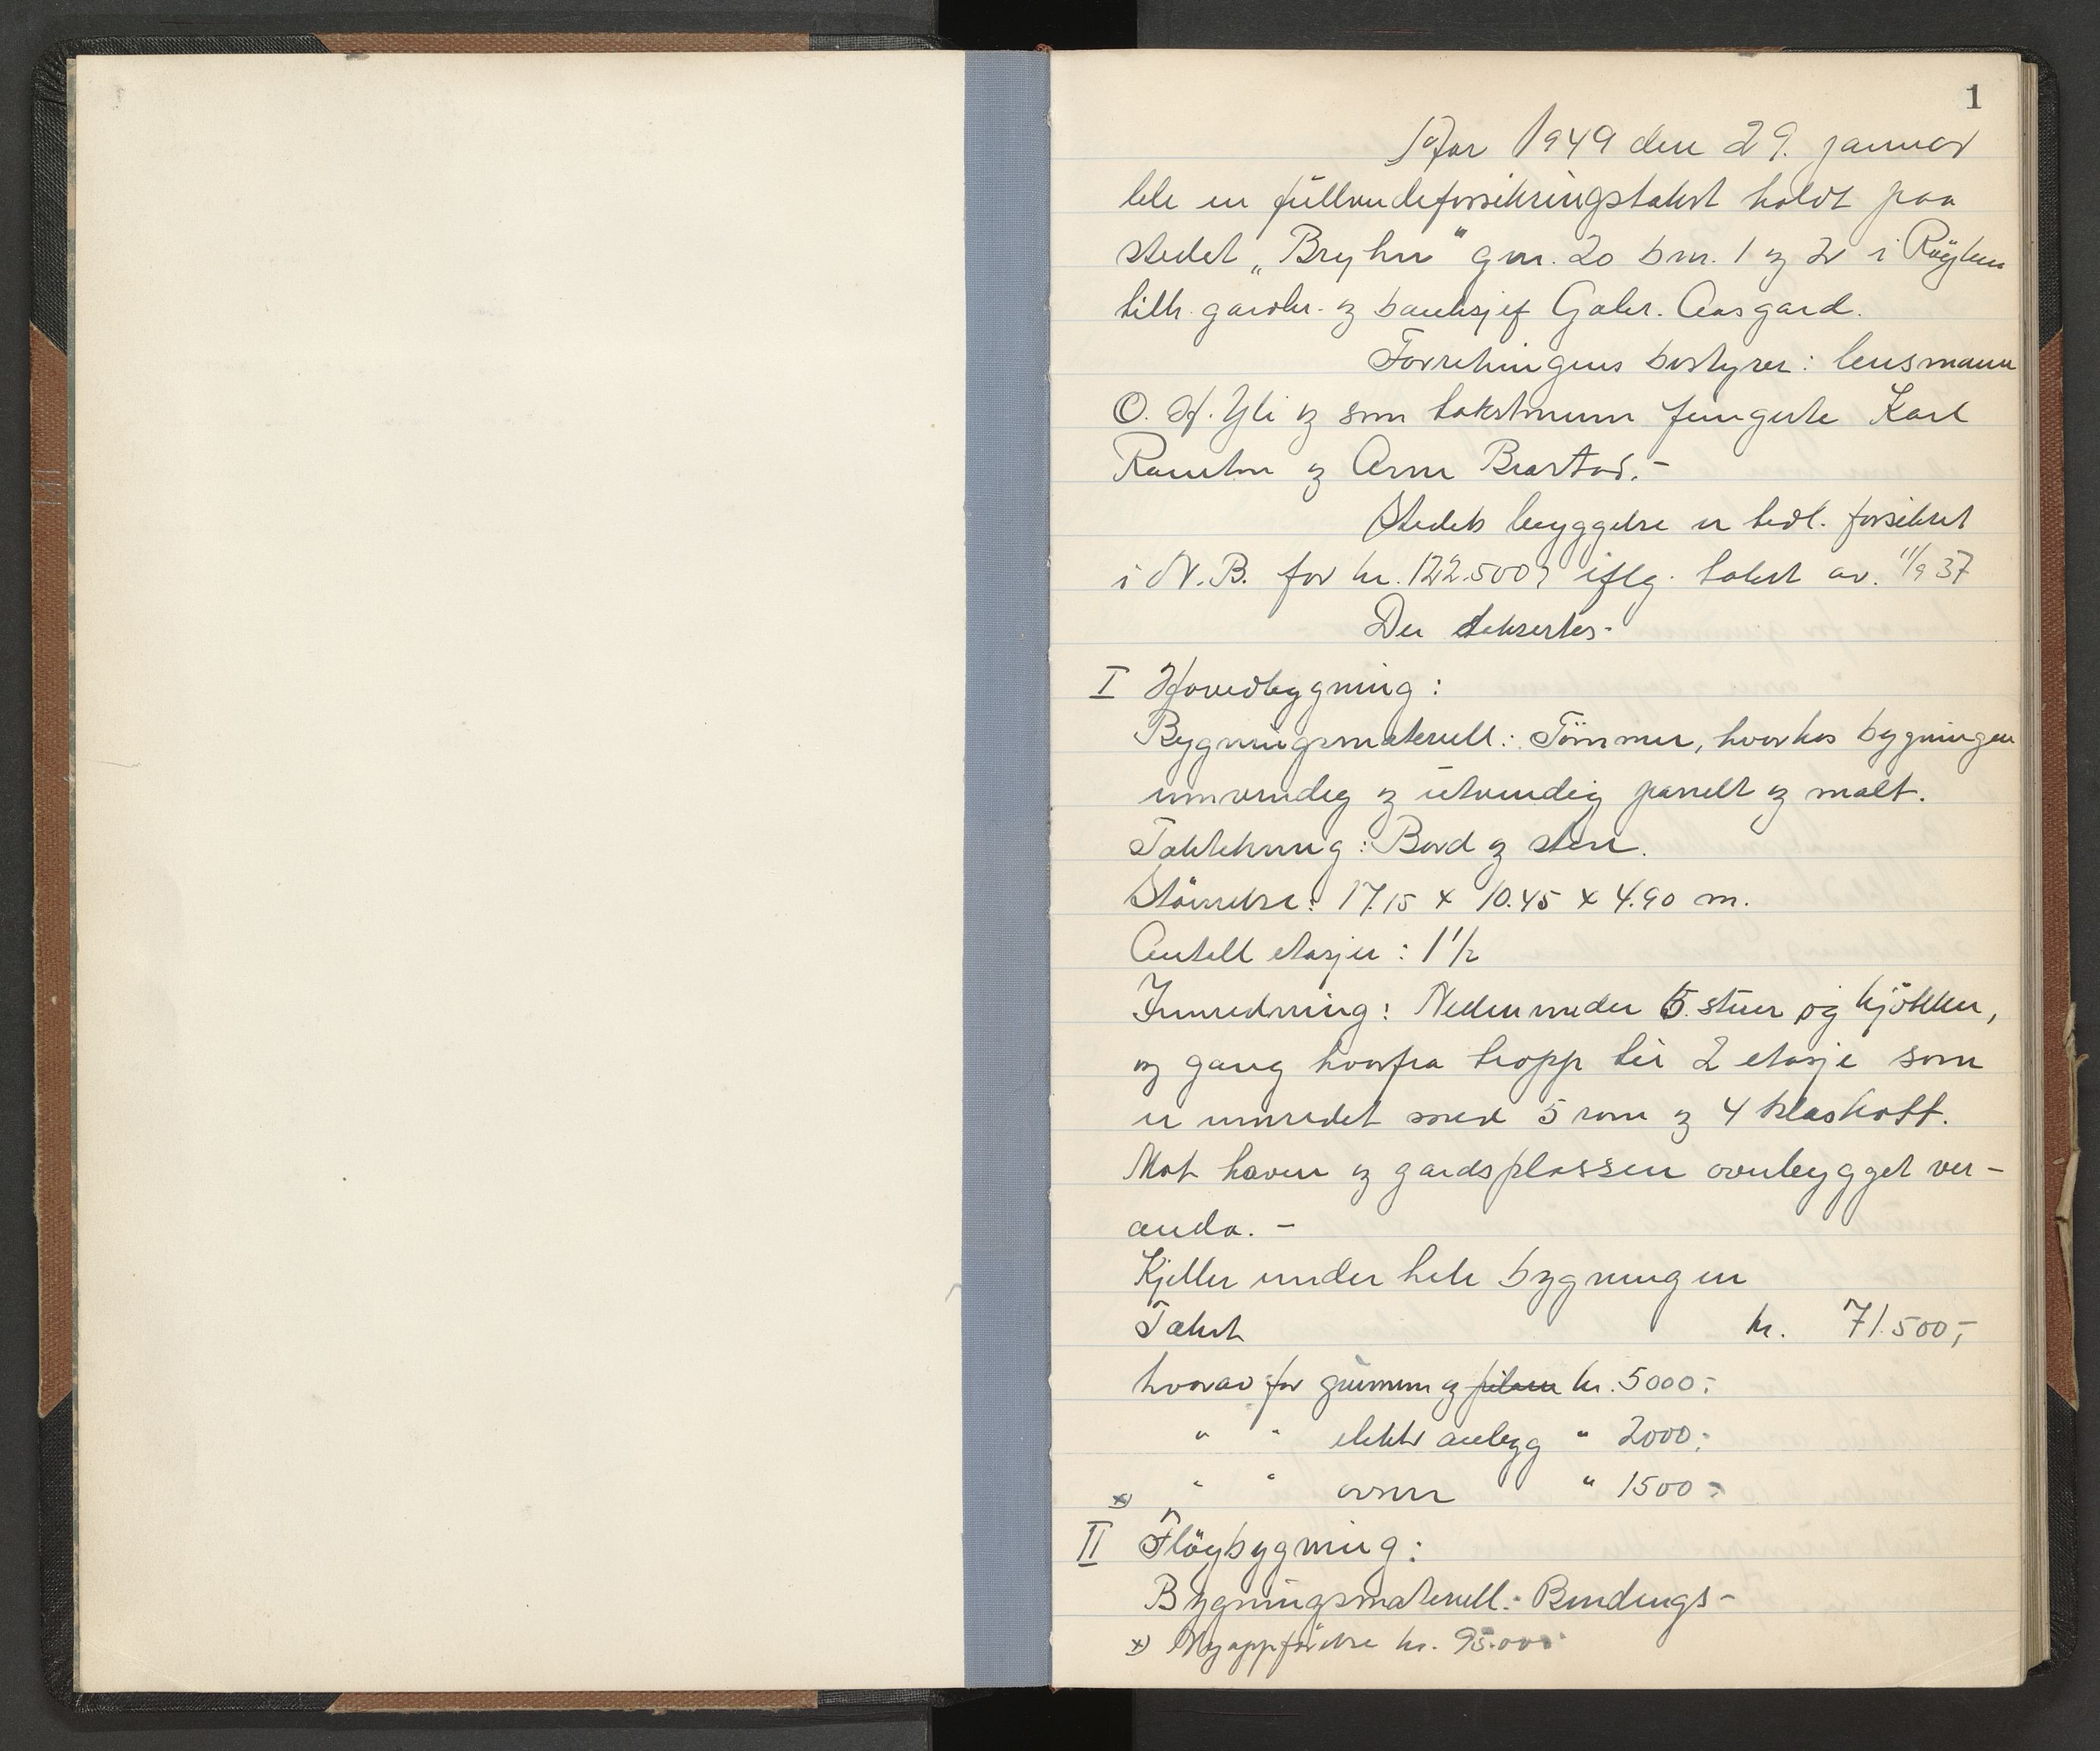 1
År 1949 den 29. januar
ble en fullverdeforsikringstakst holdt paa
stedet „Bryhn" gnr. 20 bnr. 1 og 2 i Røyken
tilh. gardbr. og banksjef Gabr. Aasgard.
Forretningens bestyrer: lensmann
O. H. Yli og som takstmenn fungerte Karl
og Arne Brastad.-
Stedets bebyggelse er tidl. forsikret
i N.B. for kr. 122.500,- iflg. takst av 11/9 37
Der taksertes-
I Hovedbygning:
Bygningsmateriell: Tömmer, hvorhos bygningen
innvendig og utvendig panelt og malt.
Taktekning: Bord og sten.
Störrelse: 17.15 x 10.45 x 4.90 m.
Antall etasjer: 1 1/2
Innredning: Nedenunder 5 stuer og kjökken,
og gang hvorfra tropp til 2 etasje som
er innredet med 5 rom og 4 kleskott.
Mot haven og gardsplassen overbygget ver-
anda. -
Kjeller under hele bygningen
Takst kr. 71.500,-
hvorav for grunnm og pilarer kr. 5000,-
" " elektr anlegg " 2000,-
x) " " ovner " 1500,-
II Flöybygning:
Bygningsmateriell:- Bindings-
x) Nyoppförelse kr. 95.000